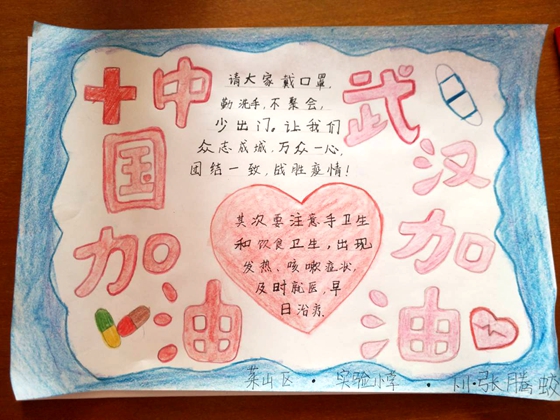 中国加油
武汉加油
请大家戴口罩,
勤洗手,不聚会,
少出门。让我们
众志成城,万众一心,
团结一致,战胜疫情!
其次要注意手卫生
和饮食卫生,出现
发热、咳嗽症状,
及时就医,早
日治疗.
莱山区·实验小学·
张腾